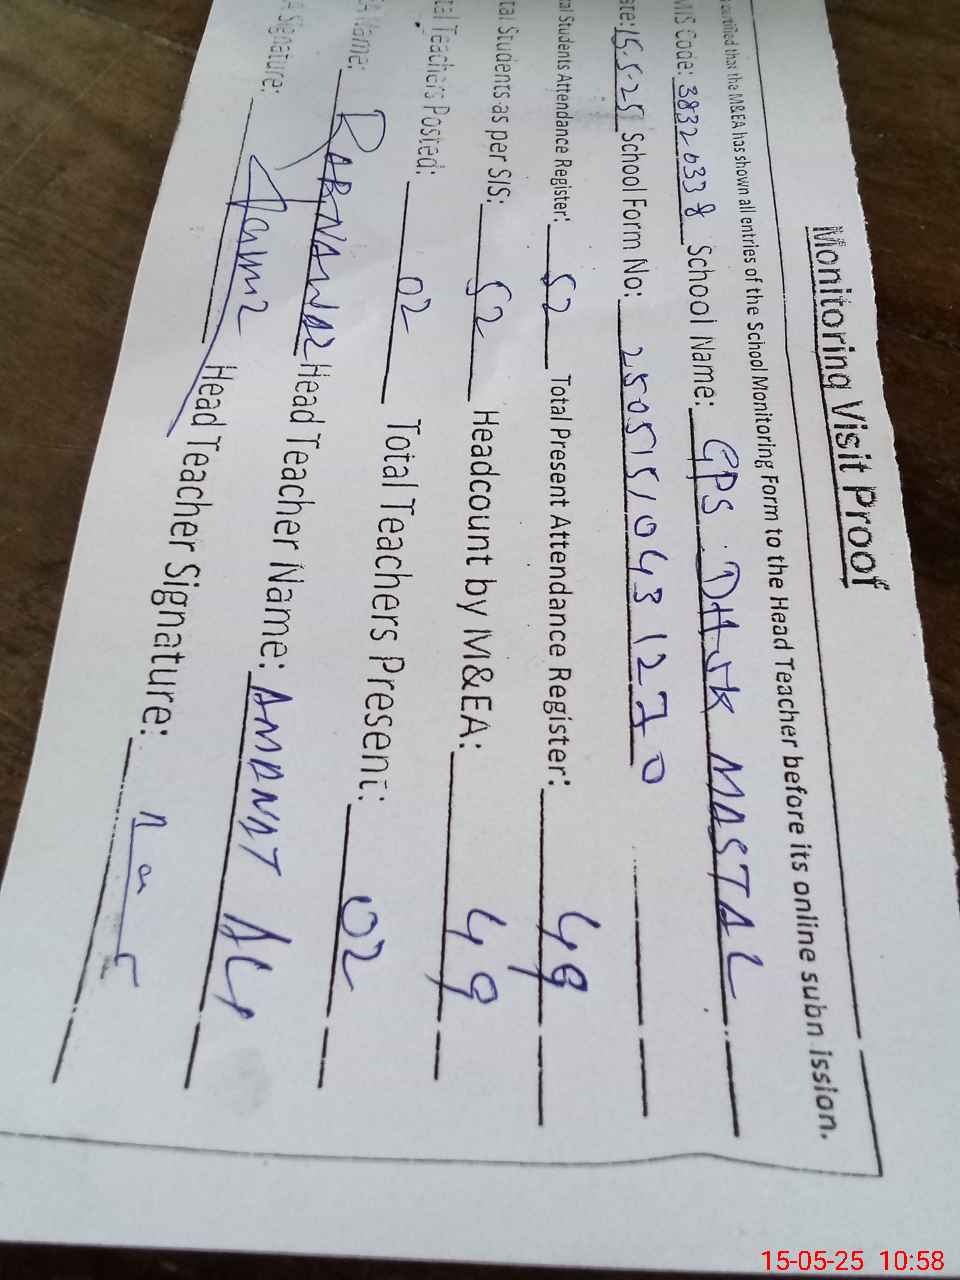 Monitoring Visit Proof
certified that the M&EA has shown all entries of the School Monitoring Form to the Head Teacher before its online subn ission.
MIS Code: 38320338 School Name: GPS DHUK MASTAL
ate: 15.5.25 School Form No: 2505151043 1270
tal Students Attendance Register: 52 Total Present Attendance Register: 49
tal Students as per SIS: 52 Headcount by M&EA: 49
tal Teachers Posted: 02 Total Teachers Present: 02
EA Name: RABNAWAZ Head Teacher Name: AMANAT ALI
A Signature: Head Teacher Signature:
15-05-25 10:58